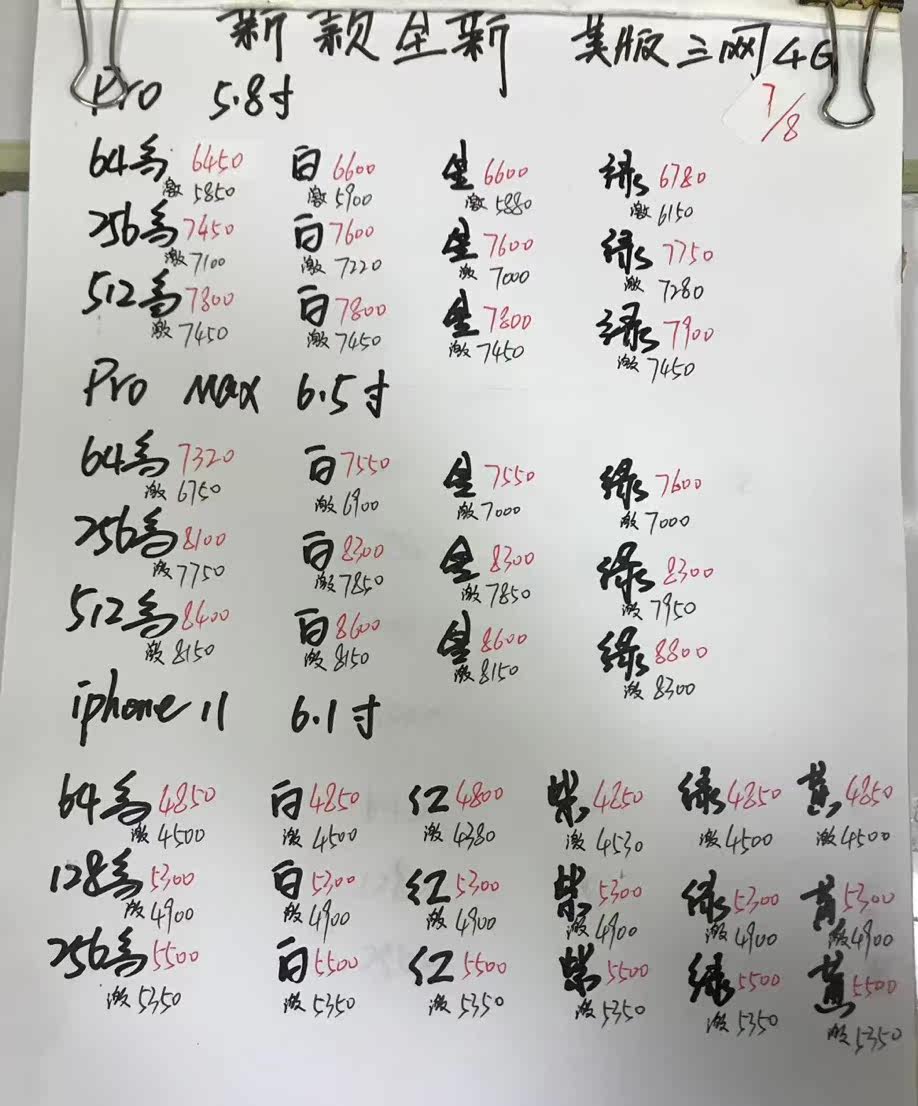 新款全新 美版三网4G
7/8
Pro 5.8寸
64乌 6450 白 6600 金 6600 绿 6780
激 5850 激 5900 激 5880 激 6150
256乌 7450 白 7600 金 7600 绿 7750
激 7100 激 7220 激 7000 激 7280
512乌 7800 白 7800 金 7800 绿 7900
激 7450 激 7450 激 7450 激 7450
Pro Max 6.5寸
64乌 7320 白 7550 金 7550 绿 7600
激 6750 激 6900 激 7000 激 7000
256乌 8100 白 8300 金 8300 绿 8300
激 7750 激 7850 激 7850 激 7950
512乌 8400 白 8600 金 8600 绿 8800
激 8150 激 8150 激 8150 激 8300
iphone 11 6.1寸
64乌 4850 白 4850 红 4800 紫 4850 绿 4850 黄 4850
激 4500 激 4500 激 4380 激 4530 激 4500 激 4500
128乌 5300 白 5300 红 5300 紫 5300 绿 5300 黄 5300
激 4900 激 4900 激 4900 激 4900 激 4900 激 4900
256乌 5500 白 5500 红 5500 紫 5500 绿 5500 黄 5500
激 5350 激 5350 激 5350 激 5350 激 5350 激 5350